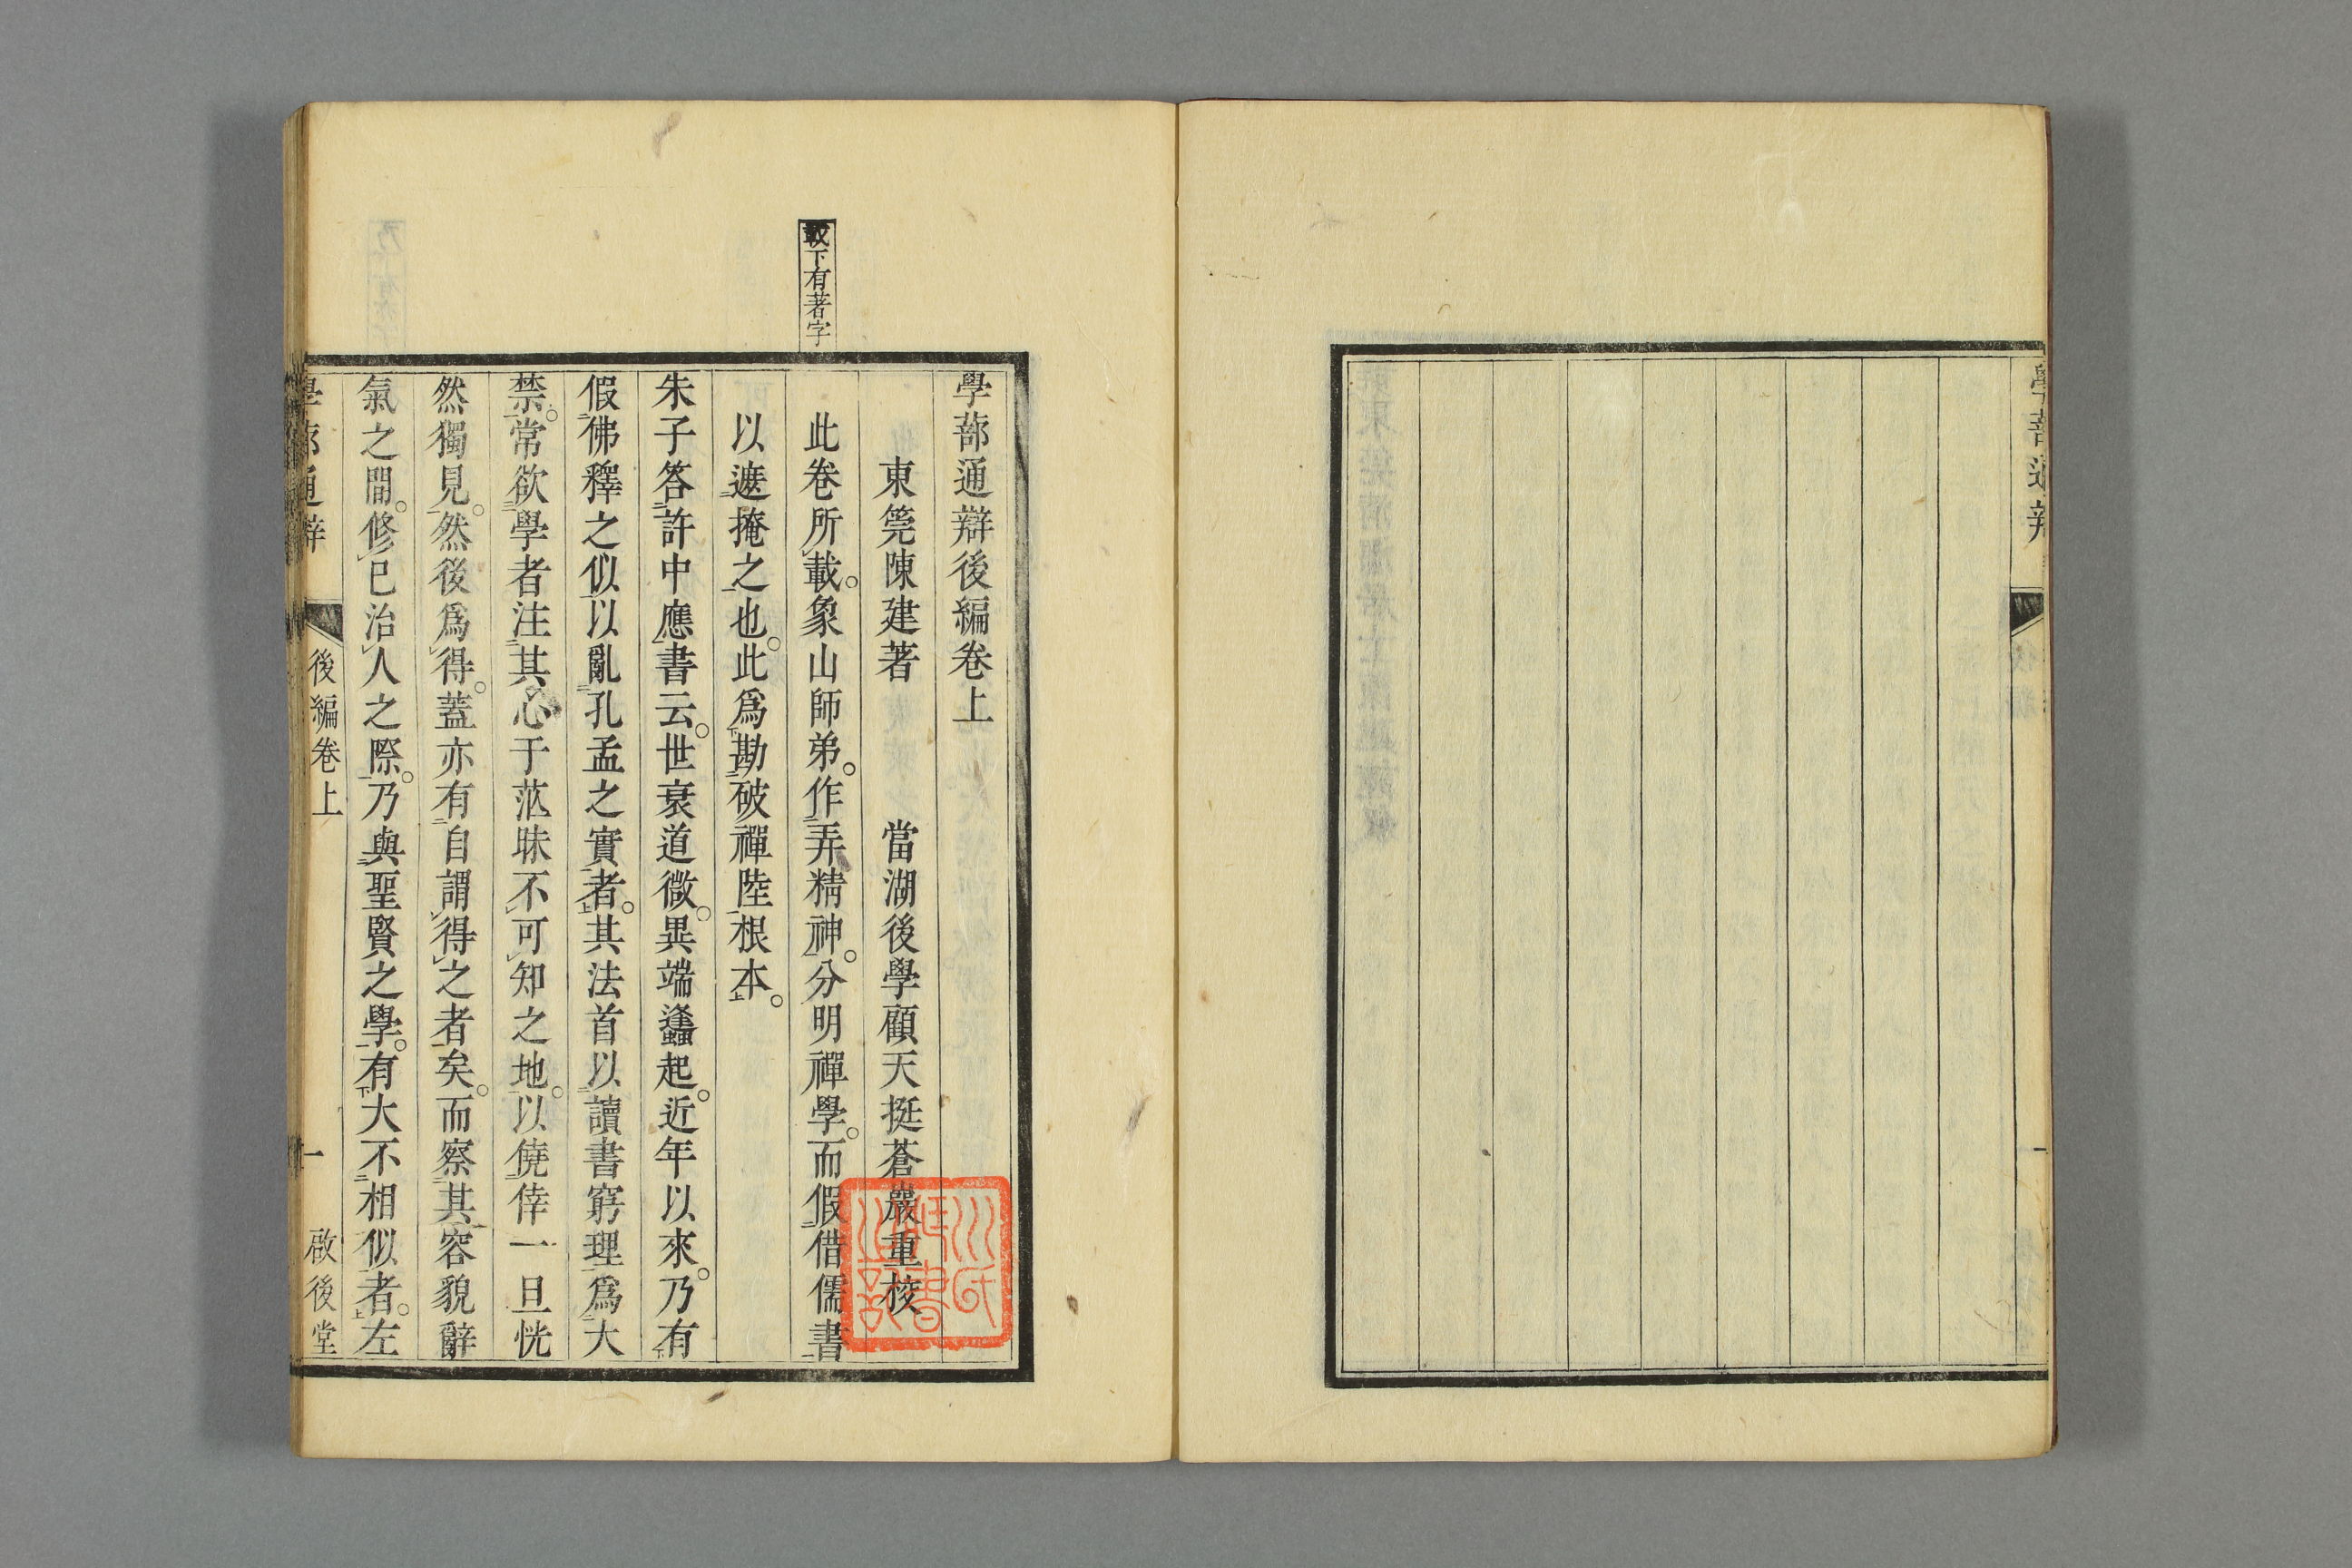 學蔀通辯
學蔀通辯後編卷上
東筦陳建著　當湖後學顧天挺蒼巖重校
載下有著字
此卷所載。象山師弟。作弄精神。分明禪學。而假借儒書
以遮掩之也。此爲勘破禪陸根本。
朱子答許中應書云。世衰道微。異端蠭起。近年以來。乃有
假佛釋之似以亂孔孟之實者。其法首以讀書窮理爲大
禁。常欲學者注其心于茫昧不可知之地。以僥倖一旦恍
然獨見。然後爲得。蓋亦有自謂得之者矣。而察其容貌辭
氣之間。修已治人之際。乃與聖賢之學。有大不相似者。左
學蔀通辯　後編卷上　一　啟後堂